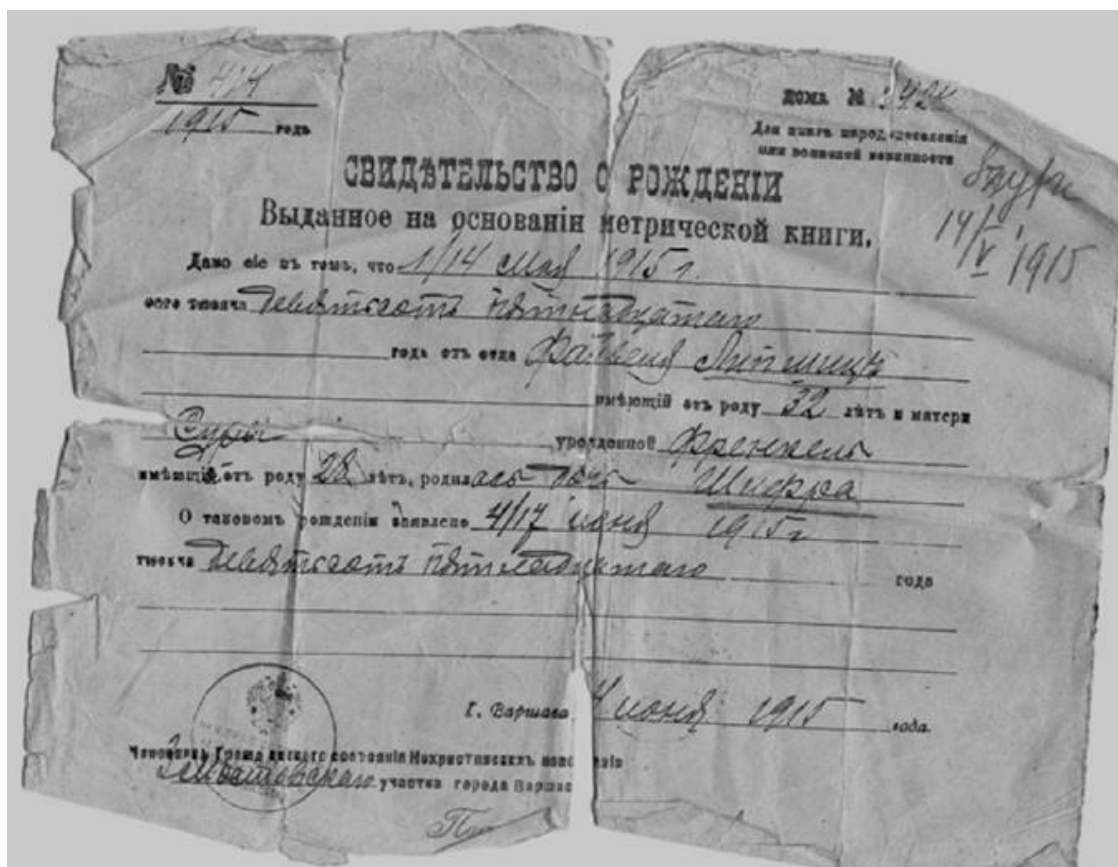 № 474
1915 годъ
ДОМА №
Для книгъ народонаселенія
или воинской повинности
14/V 1915
СВИДѢТЕЛЬСТВО О РОЖДЕНІИ
Выданное на основаніи метрической книги.
Дано сіе въ томъ, что 1/14 Мая 1915 г.
сего тысяча девятьсотъ пятнадцатаго
года отъ отца Липшицъ
имѣющій отъ роду 32 лѣтъ и матери
Суры урожденной Френкель
имѣющій отъ роду 28 лѣтъ, родилась дочь Шифра
О таковомъ рожденіи заявлено 4/17 июня 1915 г
тысяча девятьсотъ пятнадцатаго года
Г. Варшава 4 июня 1915 года.
Чиновникъ Гражданского состоянія Нехристіанскихъ
участка города Варшав